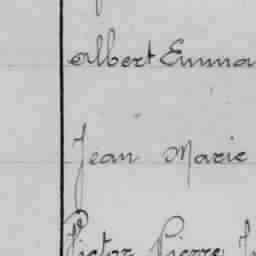 Albert Emma
Jean Marie
Victor Pierre J